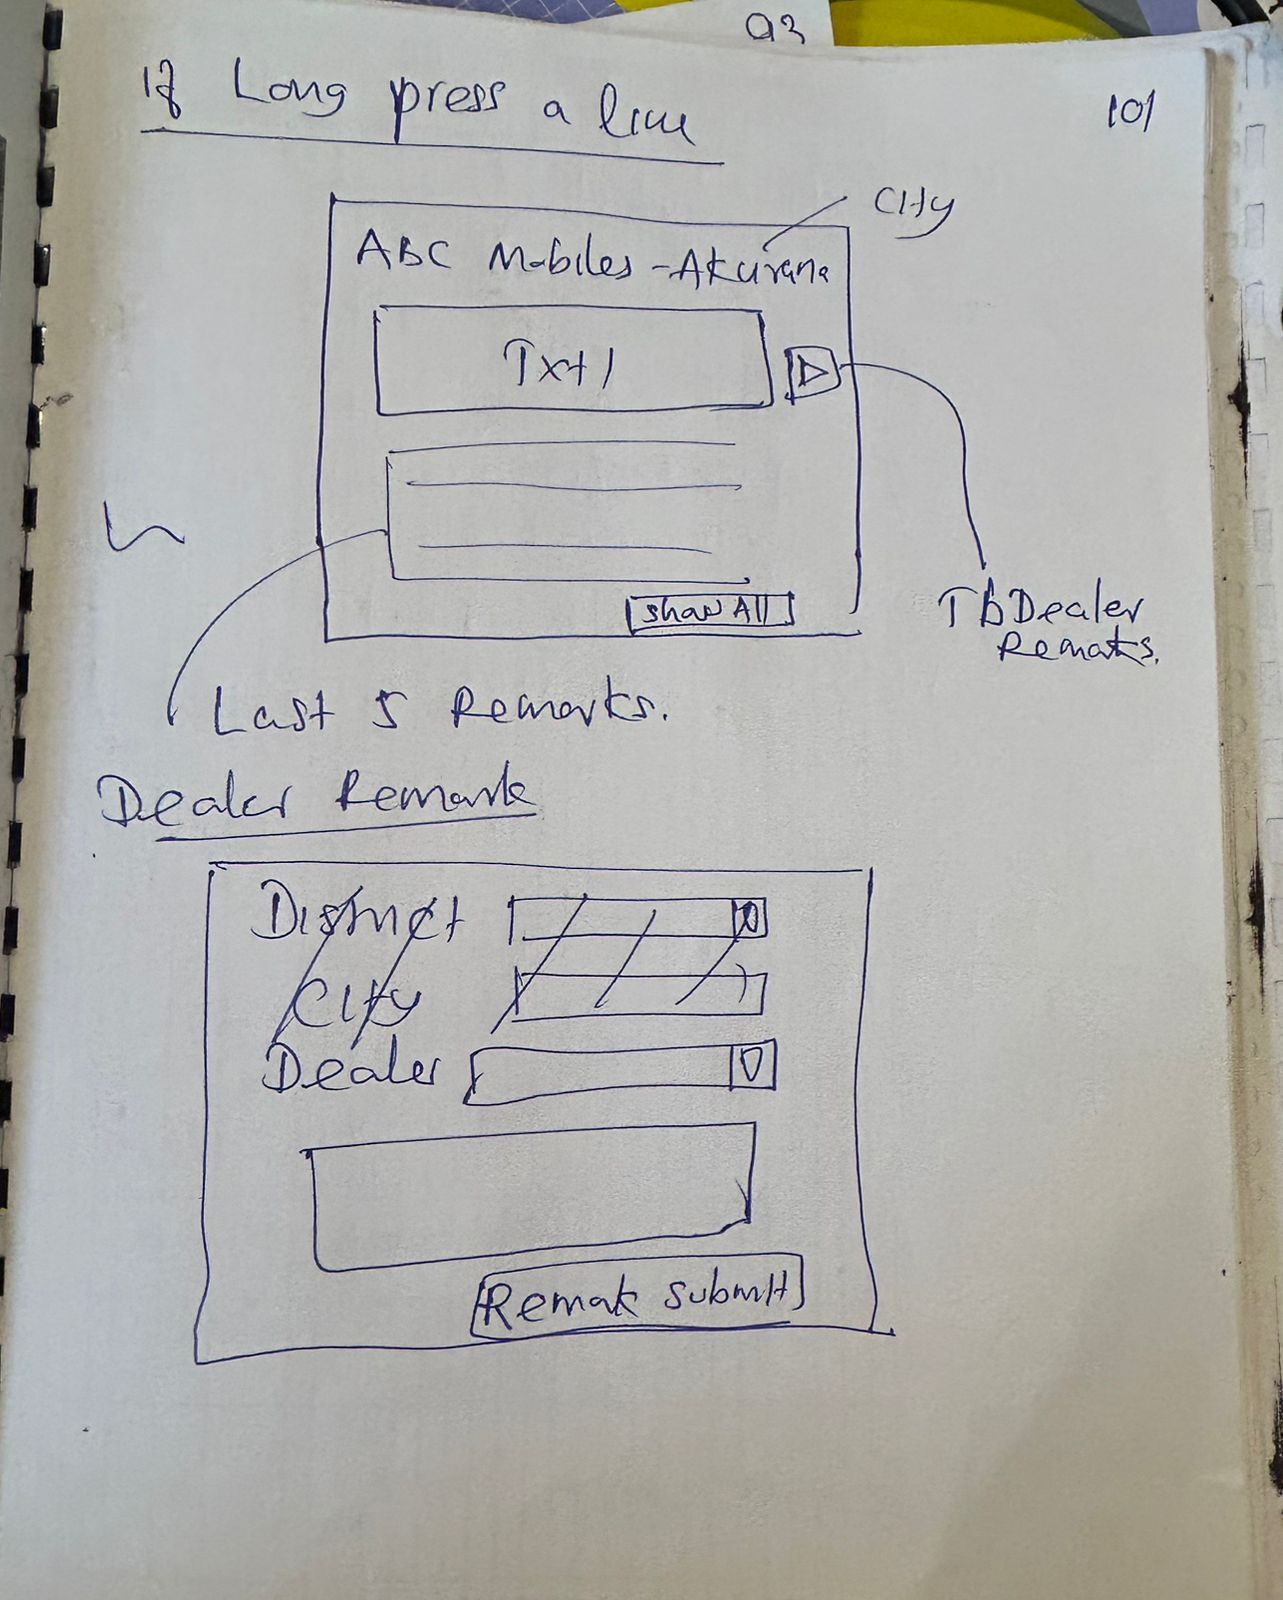 93
101
If Long press a line
City
ABC Mobiles - Akurana
Txt1
Show All
TbDealer
Remarks.
Last 5 Remarks.
Dealer Remark
District
City
Dealer
Remak Submit